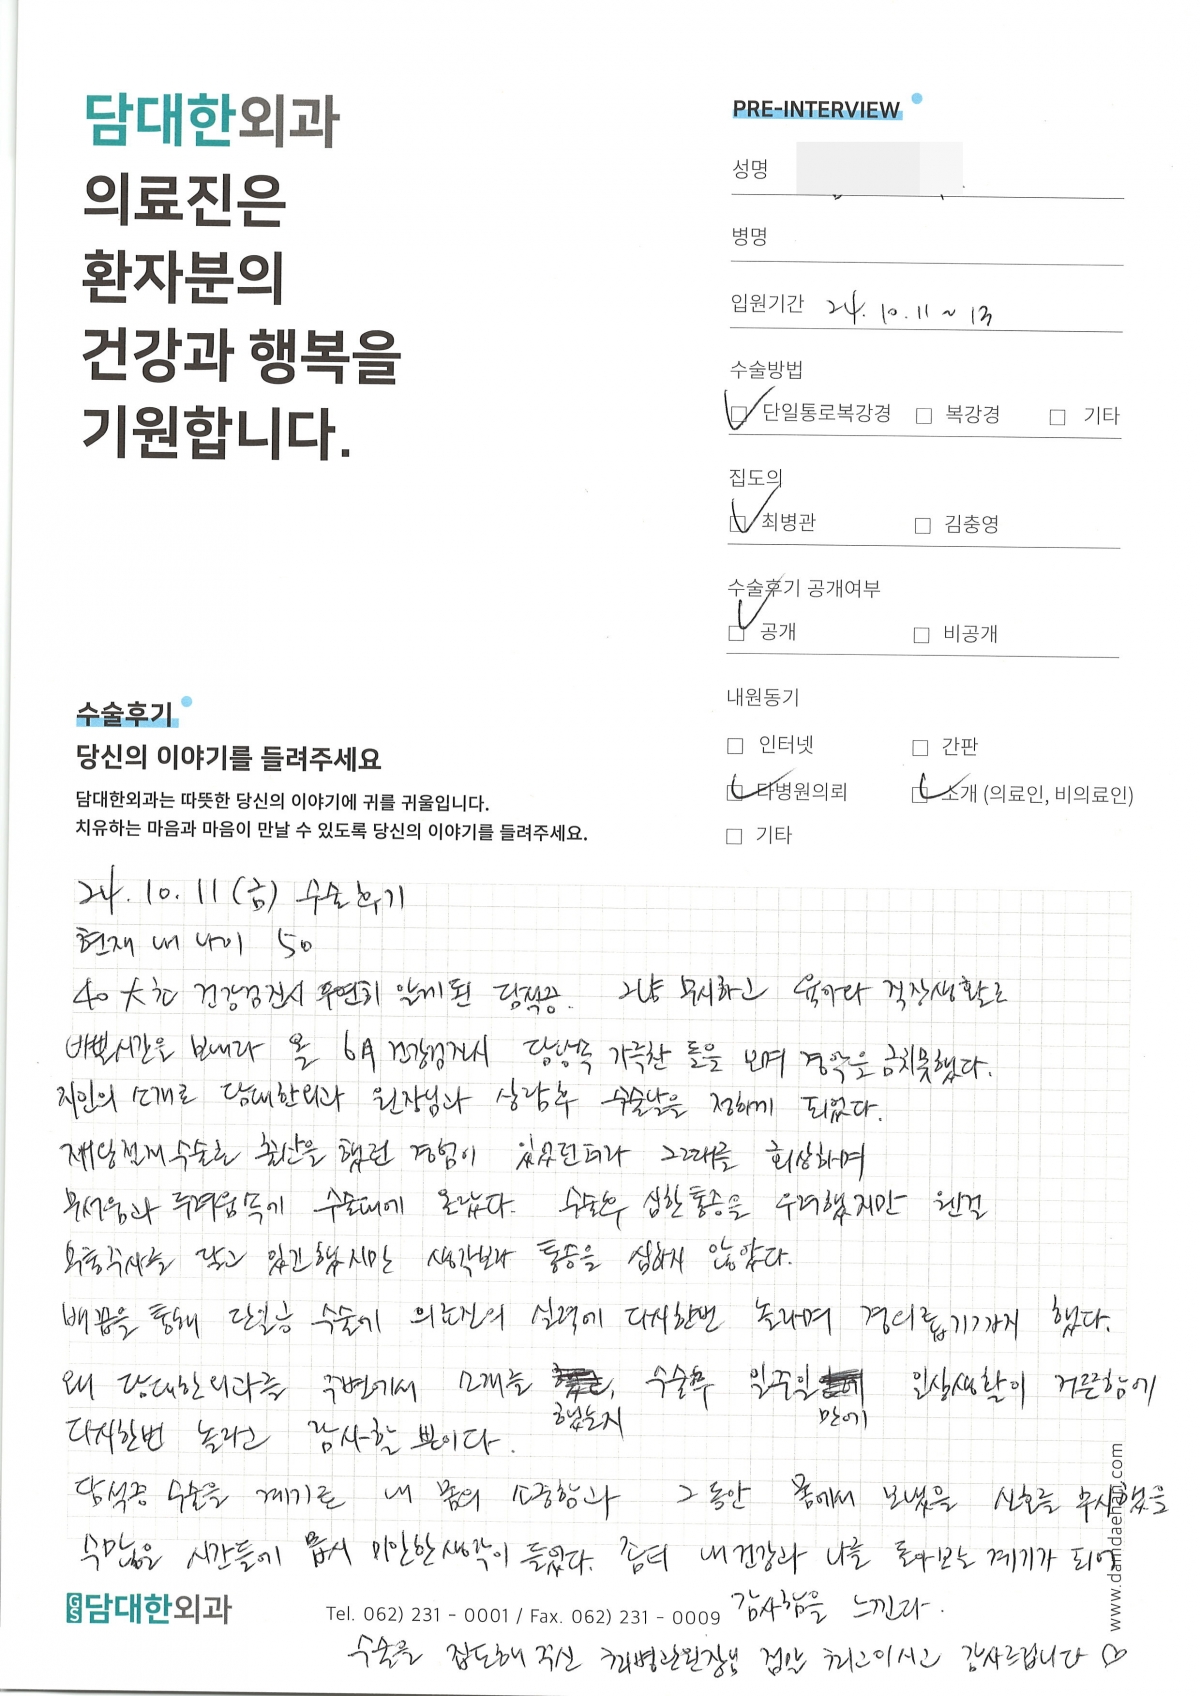 담대한외과
의료진은
환자분의
건강과 행복을
기원합니다.
PRE-INTERVIEW
성명
병명
입원기간 24. 10. 11 ~ 13
수술방법
단일통로복강경 복강경 기타
집도의
최병관 김충영
수술후기 공개여부
공개 비공개
내원동기
인터넷 간판
타병원의뢰 소개 (의료인, 비의료인)
기타
수술후기
당신의 이야기를 들려주세요
담대한외과는 따뜻한 당신의 이야기에 귀를 귀울입니다.
치유하는 마음과 마음이 만날 수 있도록 당신의 이야기를 들려주세요.
24. 10. 11 (금) 수술후기
현재 내 나이 50
40大초 건강검진시 우연히 알게된 담석증. 그냥 무시하고 육아다 직장생활로
바쁜시간을 보내다 올 6月 건강검진시 담낭속 가득찬 돌을 보며 경악을 금치못했다.
지인의 소개로 담대한외과 원장님과 상담후 수술날을 정하게 되었다.
제왕절개수술로 출산을 했던 경험이 있었던터라 그때를 회상하며
무서움과 두려움속에 수술대에 올랐다. 수술후 심한통증을 우려했지만 웬걸
무통주사를 맞고 있긴했지만 생각보다 통증을 심하지 않았다.
배꼽을 통해 단일공 수술에 의료진의 실력에 다시한번 놀라며 경의롭기까지 했다.
왜 담대한외과를 주변에서 소개를 했는지, 수술후 일주일만에 일상생활이 거뜬함에
다시한번 놀라고 감사할 뿐이다.
담석증 수술을 계기로 내 몸의 소중함과 그동안 몸에서 보냈을 신호를 무시했을
수많은 시간들에 몹시 미안한생각이 들었다. 좀더 내건강과 나를 돌아보는 계기가 되어
감사함을 느낀다.
수술을 집도해 주신 최병관원장님 최고이시고 감사드립니다 ♡
GS 담대한외과
Tel. 062) 231 - 0001 / Fax. 062) 231 - 0009
www.damdaehan.com